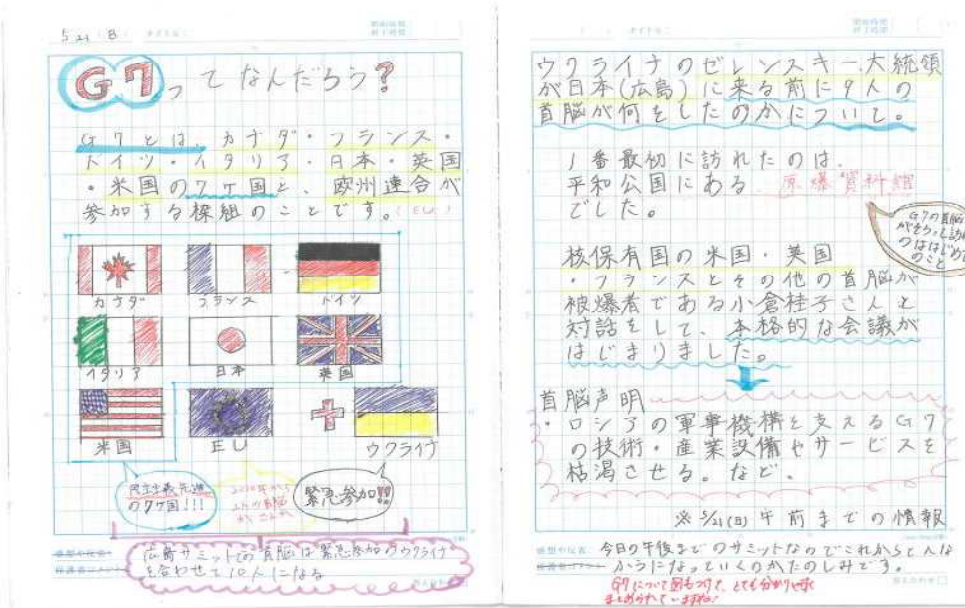 5.21 (日)
G7ってなんだろう?
G7とは、カナダ・フランス・
ドイツ・イタリア・日本・英国
・米国の7ヶ国と、欧州連合が
参加する枠組のことです。(EU)
カナダ
フランス
ドイツ
イタリア
日本
英国
米国
EU
ウクライナ
民主主義先進
の7ヶ国!!!
緊急参加!!
広島サミットでの首脳は緊急参加のウクライナ
を合わせて10人になる
ウクライナのゼレンスキー大統領
が日本(広島)に来る前に9人の
首脳が何をしたのかについて。
1番最初に訪れたのは、
平和公園にある、原爆資料館
でした。
G7の首脳
がそろって訪れ
のははじめて
のこと
核保有国の米国・英国
・フランスとその他の首脳が
被爆者である小倉桂子さんと
対話をして、本格的な会議が
はじまりました。
首脳声明
・ロシアの軍事機構を支えるG7
の技術・産業設備やサービスを
枯渇させる。など。
※5/21(日)午前までの情報
今日の午後までのサミットなのでこれからどんな
かんじになっていくのかたのしみです。
G7について図もつけて、とても分かりやすく
まとめられていますね!